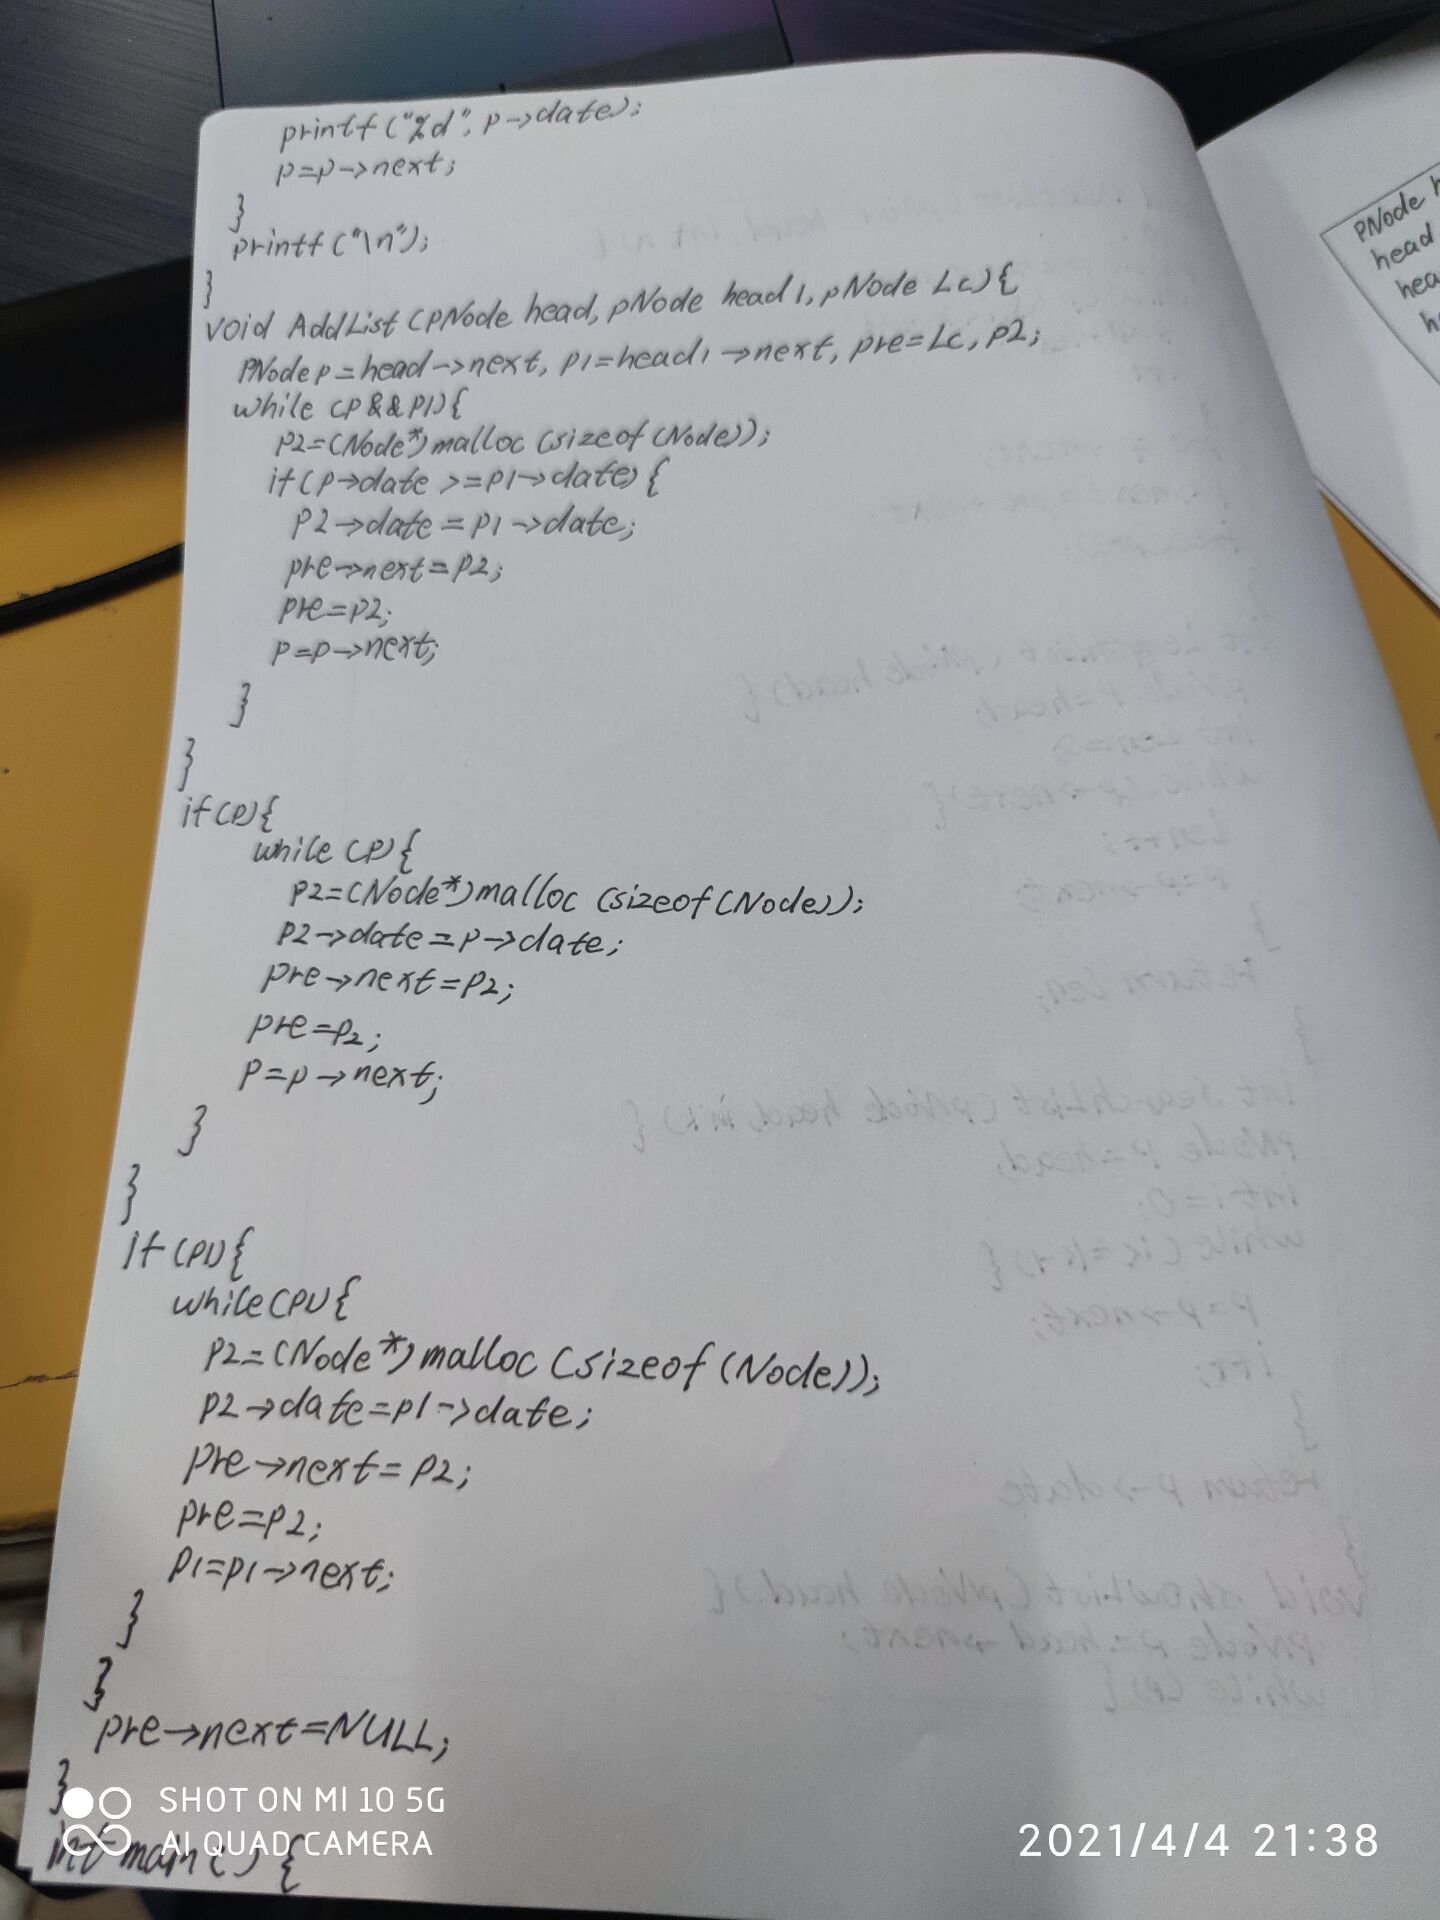 printf("%d", p->date);
p=p->next;
}
printf("\n");
}
void AddList(PNode head, pNode head1, pNode Lc){
PNode p=head->next, p1=head1->next, pre=Lc, p2;
while (p&&p1){
p2=(Node*)malloc(sizeof(Node));
if(p->date >=p1->date){
p2->date=p1->date;
pre->next=p2;
pre=p2;
p=p->next;
}
}
if(p){
while (p){
p2=(Node*)malloc(sizeof(Node));
p2->date=p->date;
pre->next=p2;
pre=p2;
p=p->next;
}
}
if(p1){
while(p1){
p2=(Node*)malloc(sizeof(Node));
p2->date=p1->date;
pre->next=p2;
pre=p2;
p1=p1->next;
}
}
pre->next=NULL;
}
int main() {
PNode
head
SHOT ON MI 10 5G
AI QUAD CAMERA
2021/4/4 21:38